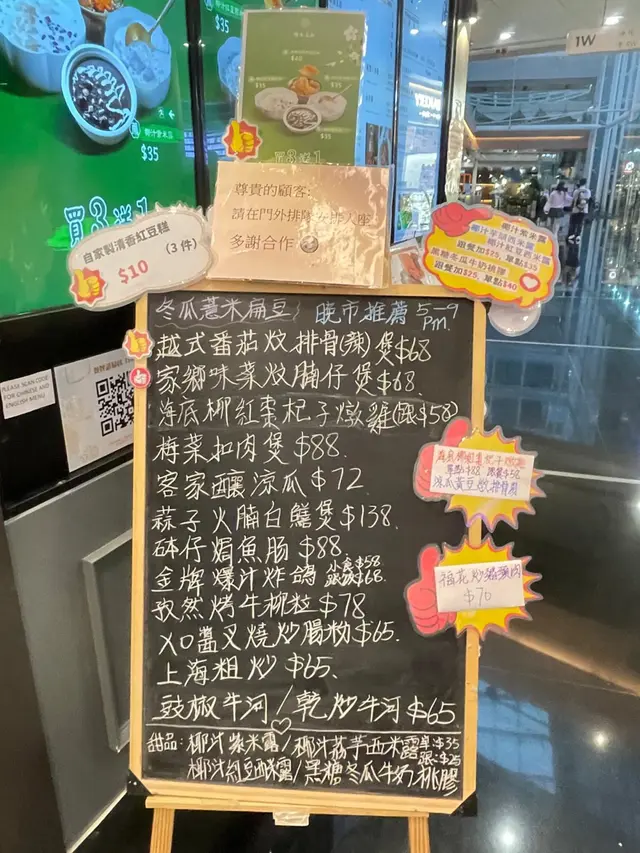 $35
$40
$35
$35
椰汁紫米露
$35
買3送1
買3送1
1W
尊貴的顧客:
請在門外排隊安排入座
多謝合作
自家製清香紅豆糕
(3件)
$10
椰汁紫米露
椰汁芋頭西米露
椰汁紅豆西米露
跟餐加$25, 單點$35
黑糖冬瓜牛奶桃膠
跟餐加$25, 單點$40
PLEASE SCAN CODE
FOR CHINESE AND
ENGLISH MENU
冬瓜薏米扁豆
晚市推薦 5-9 pm.
越式番茄炆排骨(辣)煲$68
家鄉味菜炆腩仔煲$68.
海底椰紅棗杞子燉雞(跟$58)
梅菜扣肉煲$88.
客家釀涼瓜$72
蒜子火腩白鱔煲$138.
砵仔焗魚腸$88
金牌爆汁炸鴿 小食$58
跟餐$68.
孜然烤牛柳粒$78
XO醬叉燒炒腸粉$65.
上海粗炒$65.
豉椒牛河/乾炒牛河$65
甜品: 椰汁紫米露/椰汁荔芋西米露 單:$35
跟:$25
椰汁紅豆西米露/黑糖冬瓜牛奶桃膠
海底椰紅棗杞子燉雞
單點$88 跟餐$58
涼瓜黃豆炆排骨
$70